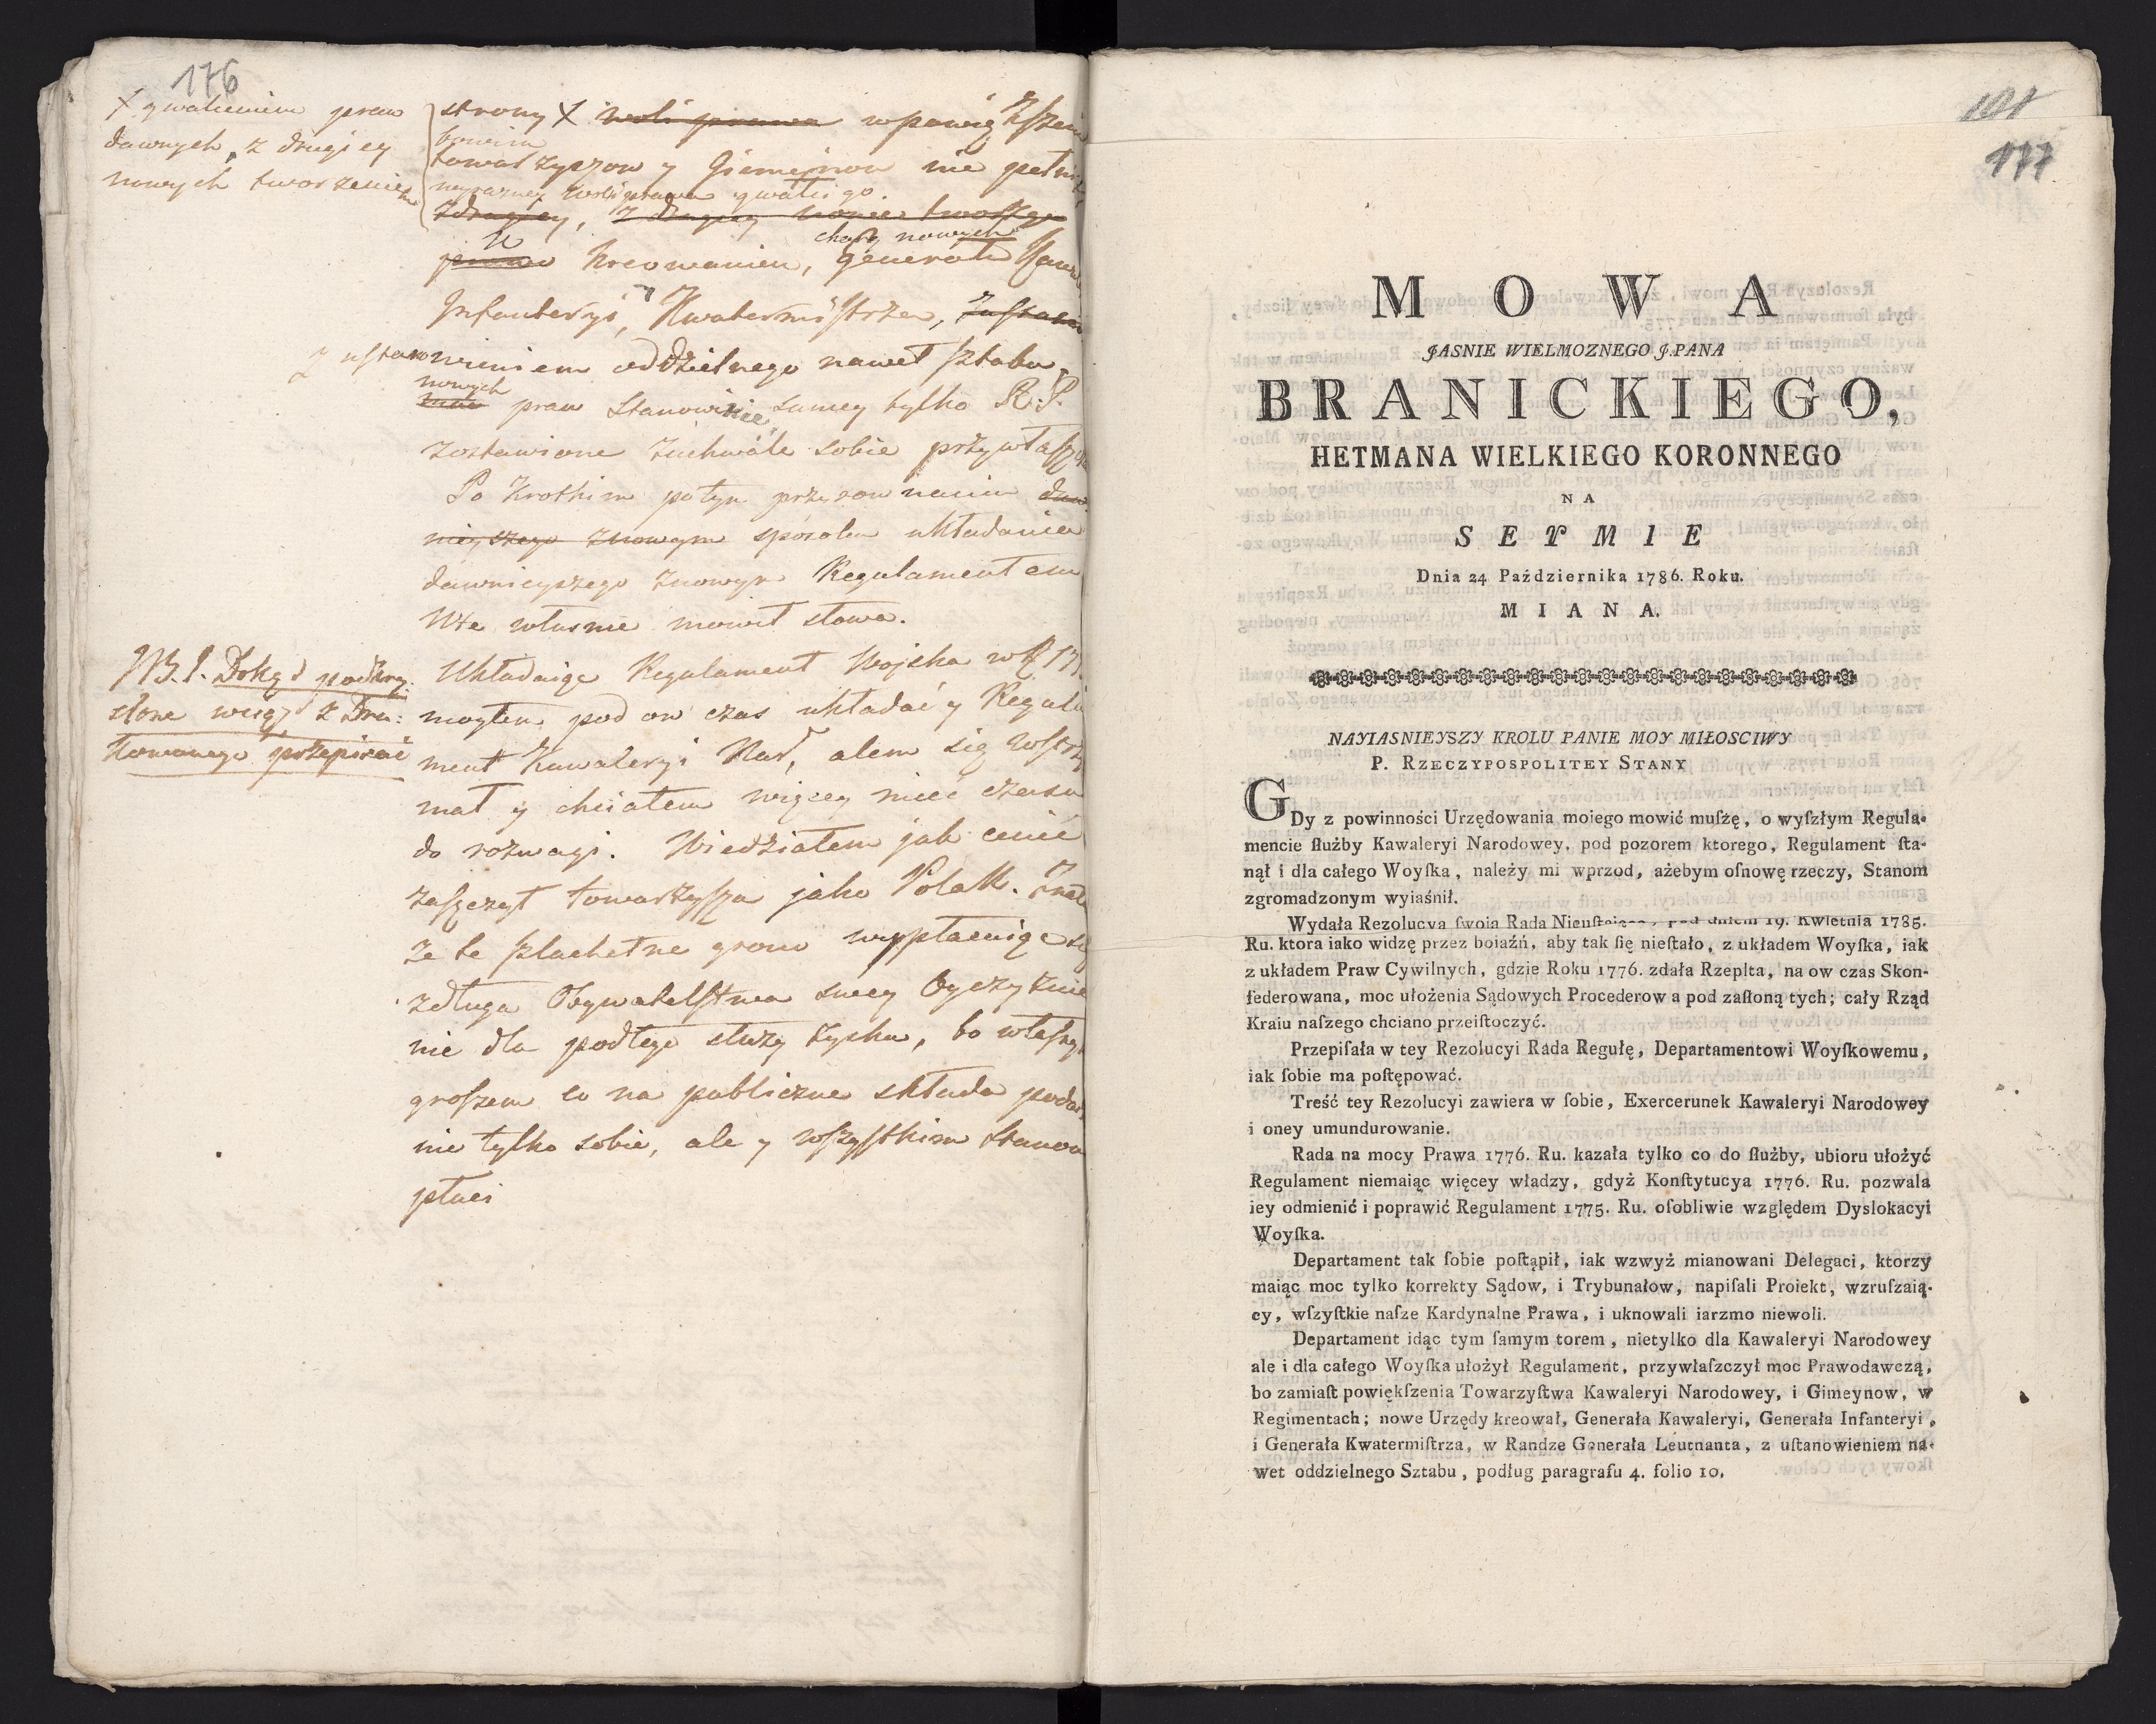 176
X gwałceniem praw
dawnych, z drugiey
nowych tworzeniem
strony X woli prawa w powiększeniu
bowiem
towarzyszow y Giemeinow nie pełniąc
wyrazney woli prawa gwałci go.
z drugiey, z drugiey nowe tworzy
u
prawo kreowaniem, charg nowych Generała Kawa
Infanteryi, Kwatermistrza, zustano
z ustanowieniem oddzielnego nawet sztabu,
nowych
praw stanowienie samey tylko R.P.
zostawione zuchwale sobie przywłaszcza
Po krotkim potym przyrownaniu daw
nieyszego znowym sposobu układania
dawnieyszego znowym Regulamentem
Wte własnie mowił słowa.
NB. I. Dokąd podkry:
slone wciąż z Dru:
kowanego przepisać
Układaiąc Regulament Wojska w R 177
mogłem pod on czas układać y Regula
ment Kawaleryi Nar, alem się wstrzy
mał y chciałem więcey mieć czasu
do rozwagi. Wiedziałem jak cenić
zaszczyt towarzysza jako Polak. Znałe
że te szlachetne grono wypłacaiąc się
z długu Obywatelstwa swey Oyczyznie
nie dla podłego służy zysku, bo własny
groszem co na publiczne składa podat
nie tylko sobie, ale y wszystkim stanom
płaci
177
M O W A
JASNIE WIELMOZNEGO J.PANA
BRANICKIEGO,
HETMANA WIELKIEGO KORONNEGO
NA
S E Y M I E
Dnia 24 Października 1786. Roku.
M I A N A.
NAYIASNIEYSZY KROLU PANIE MOY MIŁOSCIWY
P. RZECZYPOSPOLITEY STANY
GDy z powinności Urzędowania moiego mowić muſzę, o wyſzłym Regula-
mencie ſłużby Kawaleryi Narodowey, pod pozorem ktorego, Regulament ſta-
nął i dla całego Woyſka, należy mi wprzod, ażebym oſnowę rzeczy, Stanom
zgromadzonym wyiaśnił.
Wydała Rezolucya ſwoią Rada Nieuſtaiąca, pod dniem 19. Kwietnia 1785.
Ru. ktora iako widzę przez boiaźń, aby tak ſię nieſtało, z układem Woyſka, iak
z układem Praw Cywilnych, gdzie Roku 1776. zdała Rzeplta, na ow czas Skon-
federowana, moc ułożenia Sądowych Procederow a pod zaſłoną tych; cały Rząd
Kraiu naſzego chciano przeiſtoczyć.
Przepiſała w tey Rezolucyi Rada Regułę, Departamentowi Woyſkowemu,
iak ſobie ma poſtępować.
Treść tey Rezolucyi zawiera w ſobie, Exercerunek Kawaleryi Narodowey
i oney umundurowanie.
Rada na mocy Prawa 1776. Ru. kazała tylko co do ſłużby, ubioru ułożyć
Regulament niemaiąc więcey władzy, gdyż Konſtytucya 1776. Ru. pozwala
iey odmienić i poprawić Regulament 1775. Ru. oſobliwie względem Dyslokacyi
Woyſka.
Departament tak ſobie poſtąpił, iak wzwyż mianowani Delegaci, ktorzy
maiąc moc tylko korrekty Sądow, i Trybunałow, napiſali Proiekt, wzruſzaią-
cy, wſzyſtkie naſze Kardynalne Prawa, i uknowali iarzmo niewoli.
Departament idąc tym ſamym torem, nietylko dla Kawaleryi Narodowey
ale i dla całego Woyſka ułożył Regulament, przywłaſzczył moc Prawodawczą,
bo zamiaſt powiękſzenia Towarzyſtwa Kawaleryi Narodowey, i Gimeynow, w
Regimentach; nowe Urzędy kreował, Generała Kawaleryi, Generała Infanteryi,
i Generała Kwatermiſtrza, w Randze Generała Leutnanta, z uſtanowieniem na-
wet oddzielnego Sztabu, podług paragrafu 4. folio 10.